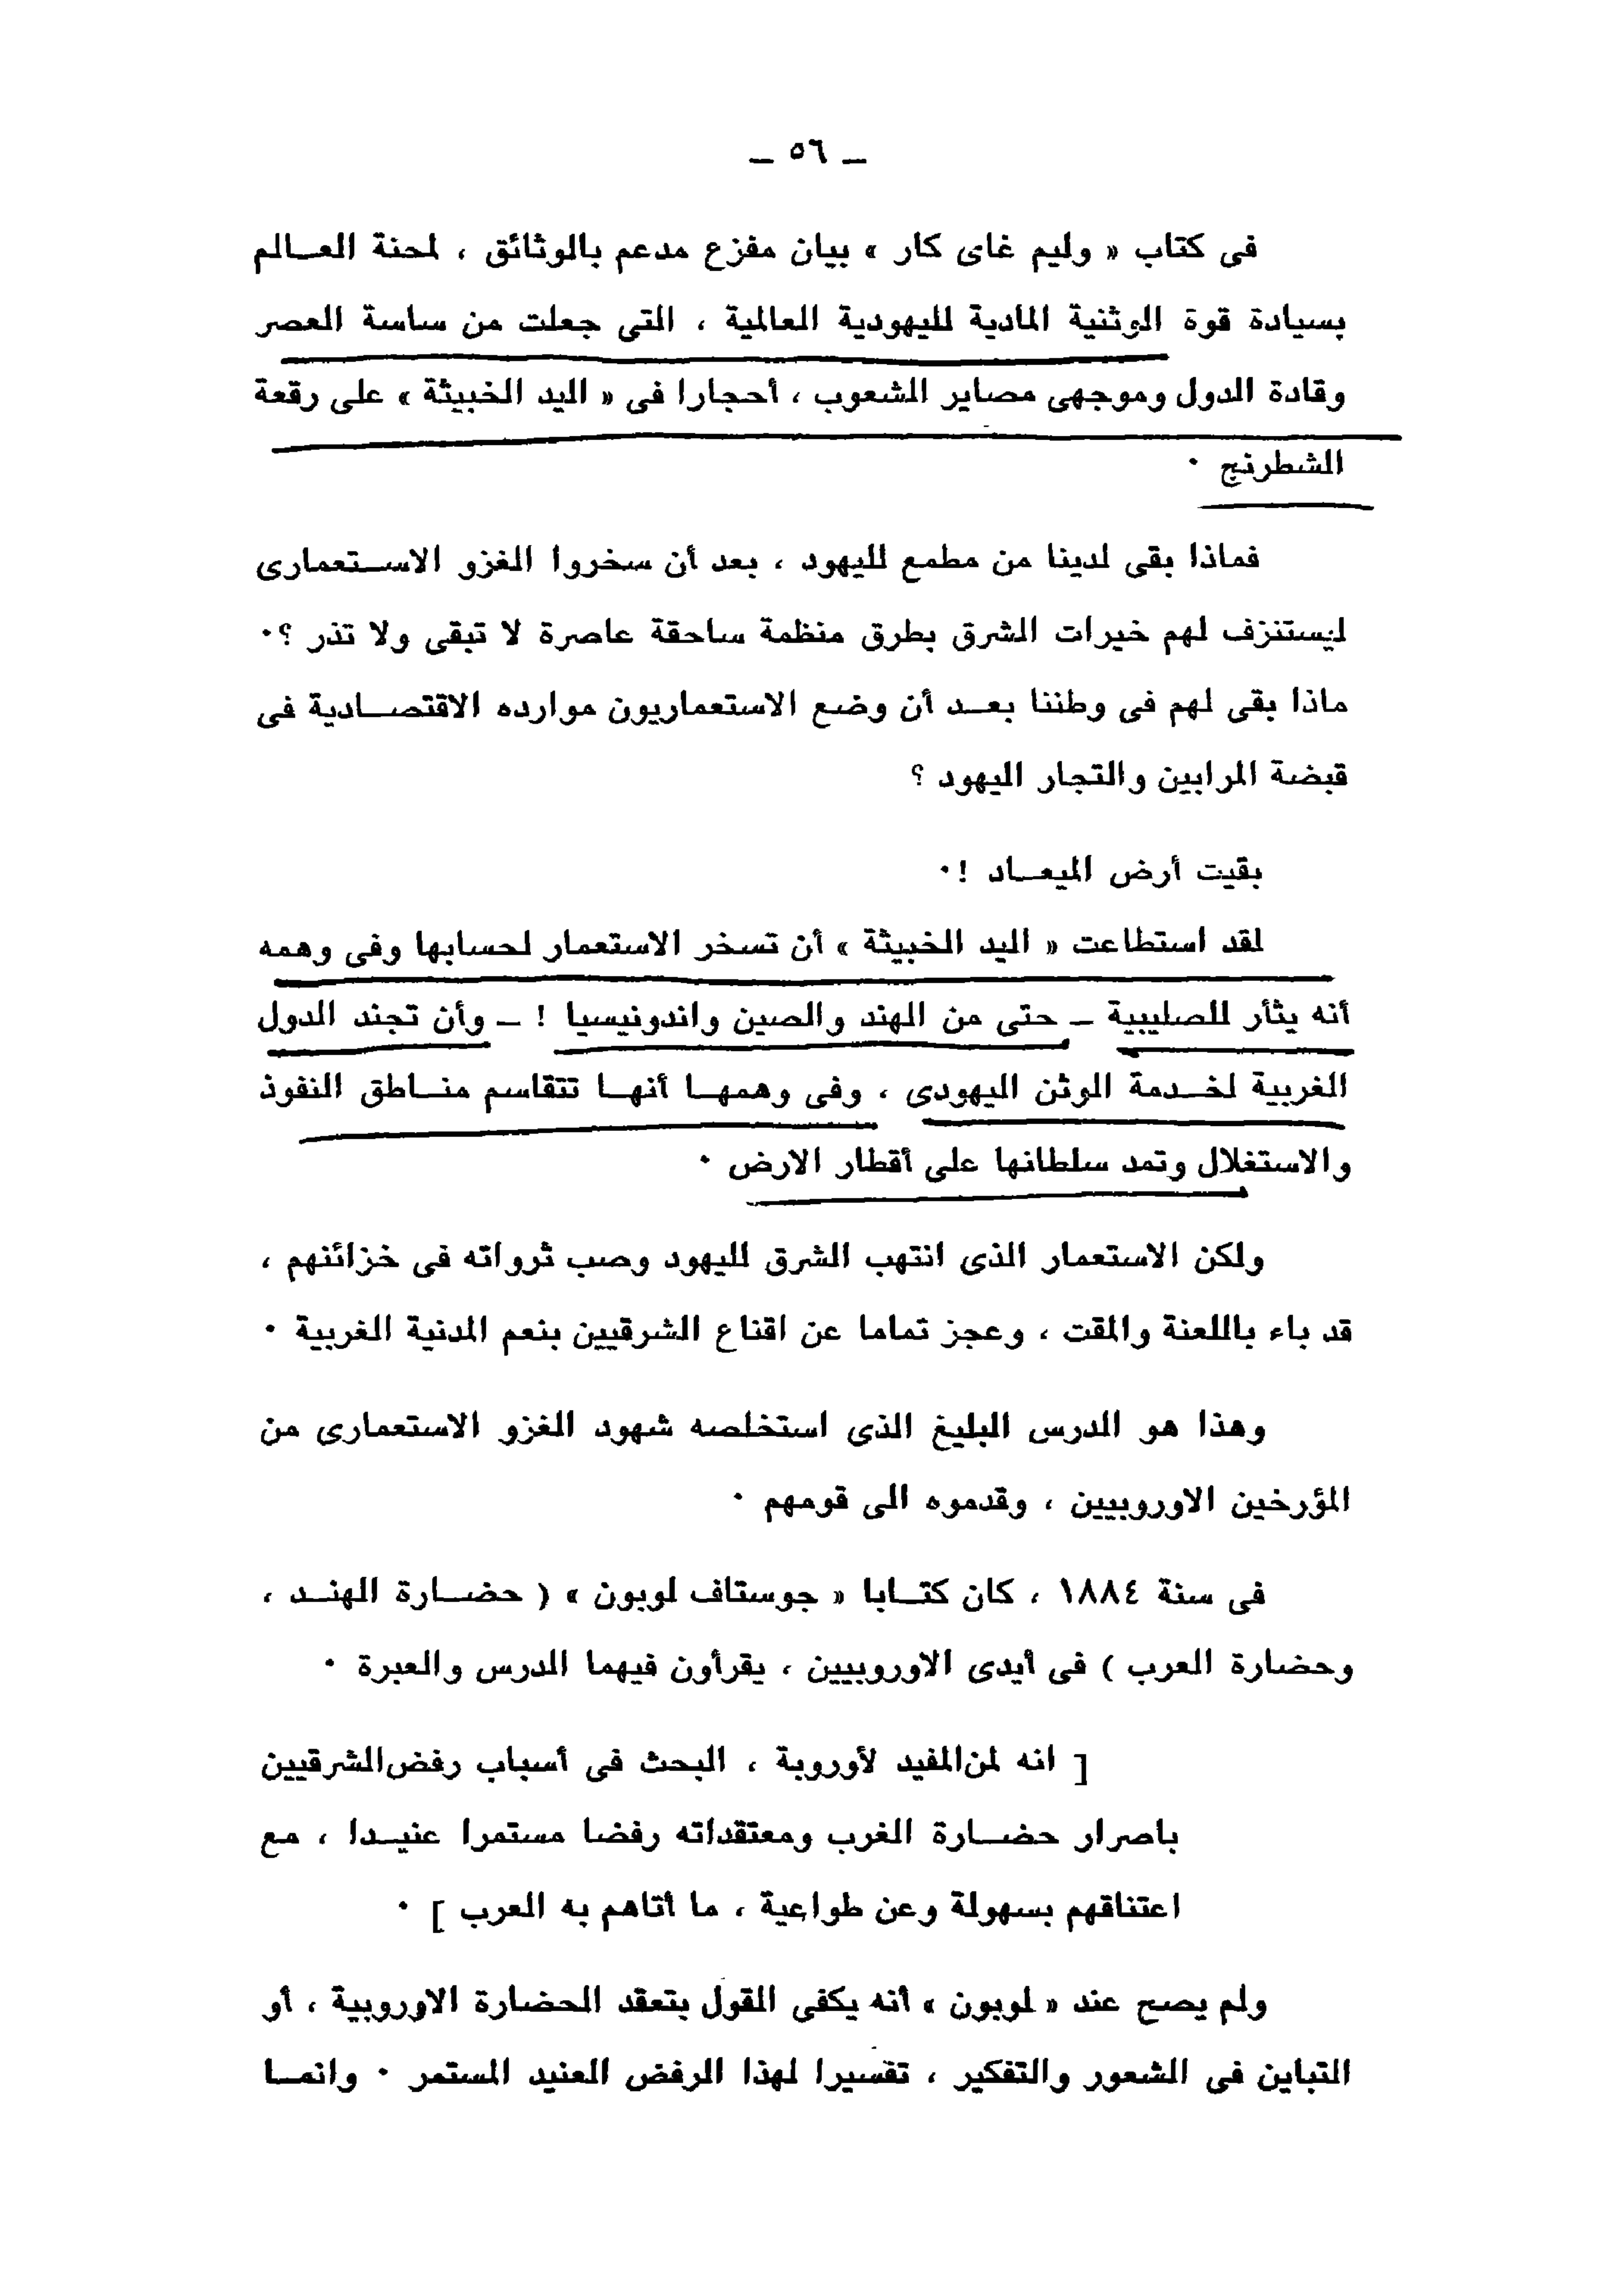 ــ ٥٦ ــ
فى كتاب « وليم غاى كار » بيان مفزع مدعم بالوثائق ، لمحنة العـالم
بسيادة قوة الوثنية المادية لليهودية العالمية ، التى جعلت من ساسة العصر
وقادة الدول وموجهى مصاير الشعوب ، أحجارا فى « اليد الخبيثة » على رقعة
الشطرنج ٠
فماذا بقى لدينا من مطمع لليهود ، بعد أن سخروا الغزو الاسـتعمارى
ليستنزف لهم خيرات الشرق بطرق منظمة ساحقة عاصرة لا تبقى ولا تذر ؟٠
ماذا بقى لهم فى وطننا بعـد أن وضع الاستعماريون موارده الاقتصـادية فى
قبضة المرابين والتجار اليهود ؟
بقيت أرض الميعـاد !٠
لقد استطاعت « اليد الخبيثة » أن تسخر الاستعمار لحسابها وفى وهمه
أنه يثأر للصليبية ــ حتى من الهند والصين واندونيسيا ! ــ وأن تجند الدول
الغربية لخـدمة الوثن اليهودى ، وفى وهمهـا أنهـا تتقاسم منـاطق النفوذ
والاستغلال وتمد سلطانها على أقطار الارض ٠
ولكن الاستعمار الذى انتهب الشرق لليهود وصب ثرواته فى خزائنهم ،
قد باء باللعنة والمقت ، وعجز تماما عن اقناع الشرقيين بنعم المدنية الغربية ٠
وهذا هو الدرس البليغ الذى استخلصه شهود الغزو الاستعمارى من
المؤرخين الاوروبيين ، وقدموه الى قومهم ٠
فى سنة ١٨٨٤ ، كان كتـابا « جوستاف لوبون » ( حضـارة الهنـد ،
وحضارة العرب ) فى أيدى الاوروبيين ، يقرأون فيهما الدرس والعبرة ٠
[ انه لمن المفيد لأوروبة ، البحث فى أسباب رفض الشرقيين
باصرار حضـارة الغرب ومعتقداته رفضا مستمرا عنيـدا ، مع
اعتناقهم بسهولة وعن طواعية ، ما أتاهم به العرب ] ٠
ولم يصح عند « لوبون » أنه يكفى القول بتعقد الحضارة الاوروبية ، أو
التباين فى الشعور والتفكير ، تفسيرا لهذا الرفض العنيد المستمر ٠ وانمـا